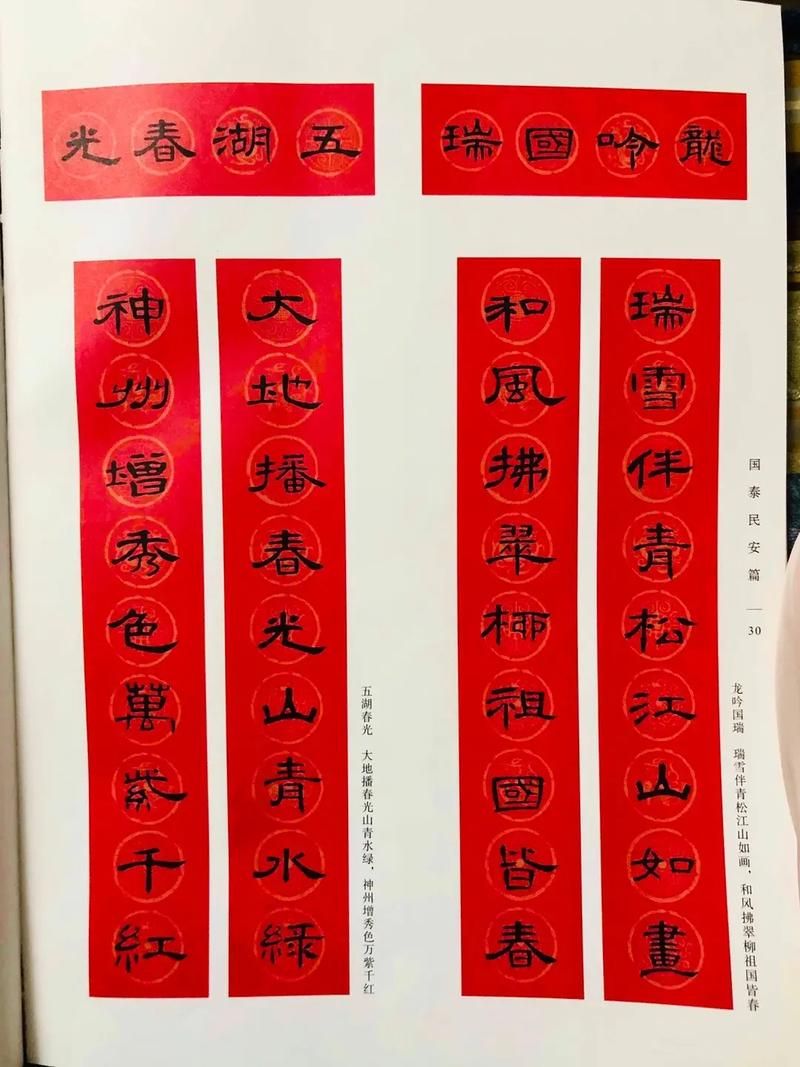 龍吟國瑞
瑞雪伴青松江山如畫
和風拂翠柳祖國皆春
龙吟国瑞　瑞雪伴青松江山如画，和风拂翠柳祖国皆春
五湖春光
大地播春光山青水綠
神州增秀色萬紫千紅
五湖春光　大地播春光山青水绿，神州增秀色万紫千红
国泰民安篇 — 30